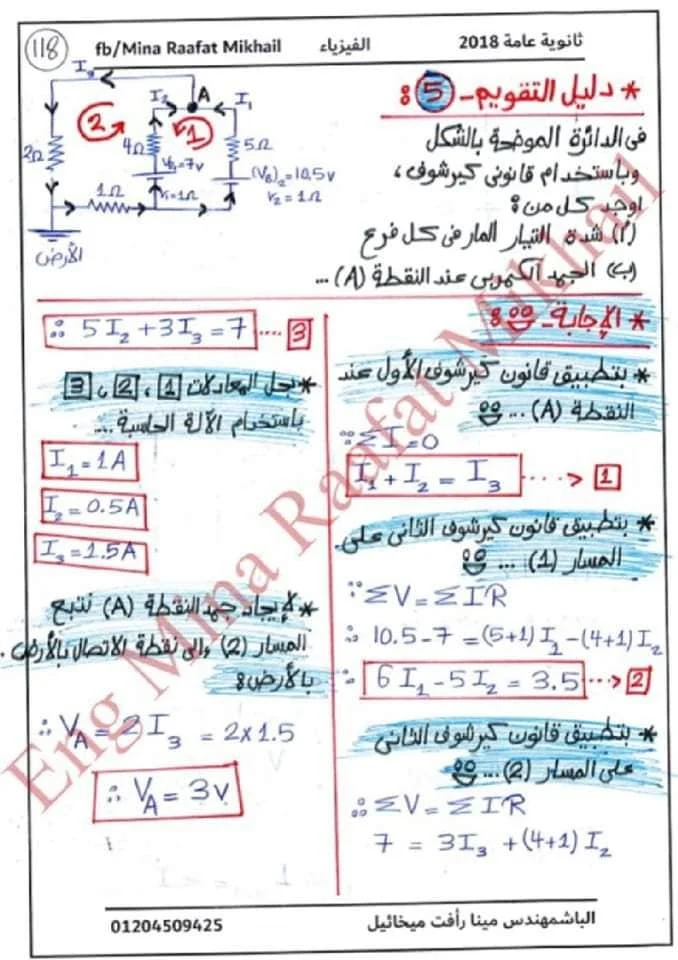 118
fb/Mina Raafat Mikhail
الفيزياء
ثانوية عامة 2018
* دليل التقويم - 5 :
فى الدائرة الموضحة بالشكل
وباستخدام قانونى كيرشوف ،
اوجد كل من :
(أ) شدة التيار المار فى كل فرع
(ب) الجهد الكهربى عند النقطة (A) ...
I₃
I₂
A
I₁
2
1
2Ω
4Ω
5Ω
V_B₁=7v
(V_B)₂=10.5v
r₁=1Ω
r₂=1Ω
1Ω
الأرض
* الإجابة :
* بتطبيق قانون كيرشوف الأول عند
النقطة (A) ...
∵ ΣI=0
I₁ + I₂ = I₃ ....> 1
* بتطبيق قانون كيرشوف الثانى على
المسار (1) ...
∵ ΣV = ΣIR
∴ 10.5-7 = (5+1)I₁ -(4+1)I₂
∴ 6I₁ - 5I₂ = 3.5 ...> 2
* بتطبيق قانون كيرشوف الثانى
على المسار (2) ...
∵ ΣV = ΣIR
7 = 3I₃ +(4+1)I₂
∴ 5I₂ +3I₃ = 7 .... 3
* بحل المعادلات 1 ، 2 ، 3
باستخدام الآلة الحاسبة ...
I₁ = 1A
I₂ = 0.5A
I₃ = 1.5A
* لإيجاد جهد النقطة (A) نتبع
المسار (2) والى نقطة الاتصال بالأرض .
بالأرض :
∴ V_A = 2I₃ = 2x1.5
∴ V_A = 3v
Eng Mina Raafat Mikhail
01204509425
الباشمهندس مينا رأفت ميخائيل